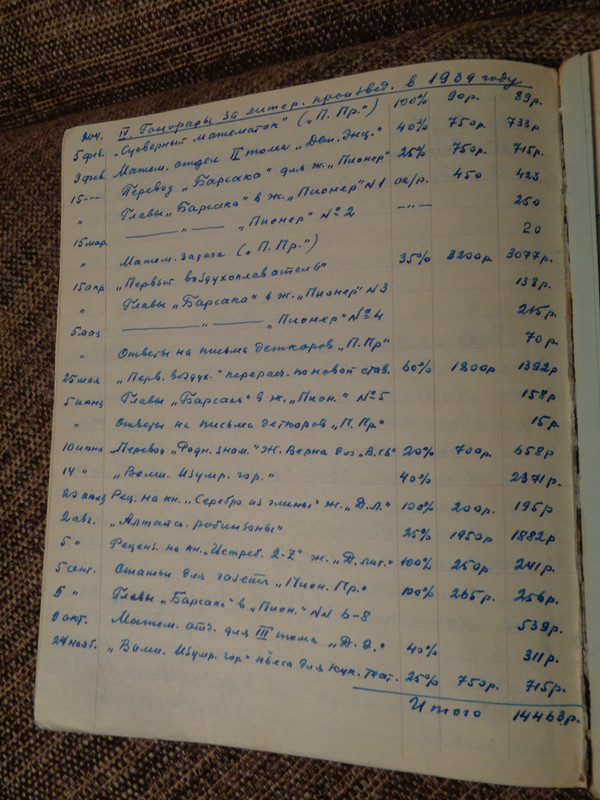 IV. Гонорары за литер. произвед. в 1939 году
5 фев. „Суеверный математик“ („П. Пр.“) 100% 90р. 89р.
9 фев. Матем. отдел II тома „Дет. Энц.“ 40% 750р. 733р.
15 -"- Перевод „Барсака“ для ж. „Пионер“ 25% 750р. 715р.
" Главы „Барсака“ в ж. „Пионер“ №1 ок/р. 450 425
15 мар. — " — „Пионер“ №2 — " — 250
" Матем. задача („П. Пр.“) 20
15 апр „Первый воздухоплаватель“ 35% 3200р. 3077р.
" Главы „Барсака“ в ж. „Пионер“ №3 138р.
5 мая — " — „Пионер“ №4 215р.
" Ответы на письма деткоров „П. Пр“ 70р.
25 мая „Перв. воздух.“ перерасч. по новой став. 60% 1200р. 1392р
5 июня Главы „Барсака“ в ж. „Пион.“ №5 158р
" Ответы на письма деткоров „П. Пр“ 15р.
10 июня Перевод „Родн. знам.“ Ж. Верна для „В. св“ 20% 700р. 658р
14 " „Волш. Изумр. гор.“ 40% 2371р.
20 июня Рец. на кн. „Серебро из глины“ ж. „Д. Л.“ 100% 200р. 195р
2 авг. „Алтайск. робинзоны“ 25% 1950р 1882р
5 " Реценз. на кн. „Истреб. 2-Z“ ж. „Д. лит.“ 100% 250р. 241р.
5 сент. Статьи для газеты „Пион. Пр.“ 100% 265р. 256р.
5 " Главы „Барсака“ в „Пион.“ №№ 6-8 539р.
8 окт. Матем. отд. для III тома „Д. Э.“ 40% 311р.
24 нояб. „Волш. Изумр. гор“ пьеса для кук. теат. 25% 750р. 715р.
Итого 14463р.